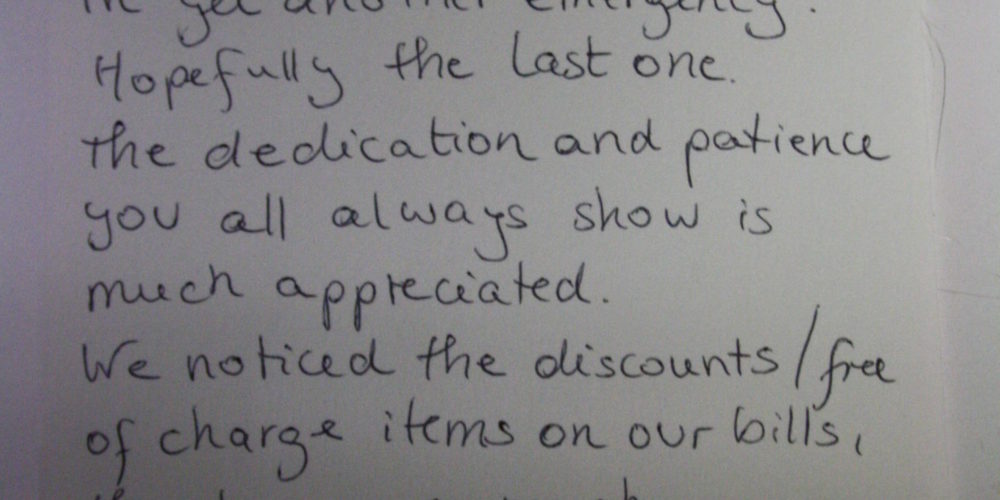 in yet another emergency.
Hopefully the last one.
the dedication and patience
you all always show is
much appreciated.
We noticed the discounts/free
of charge items on our bills,